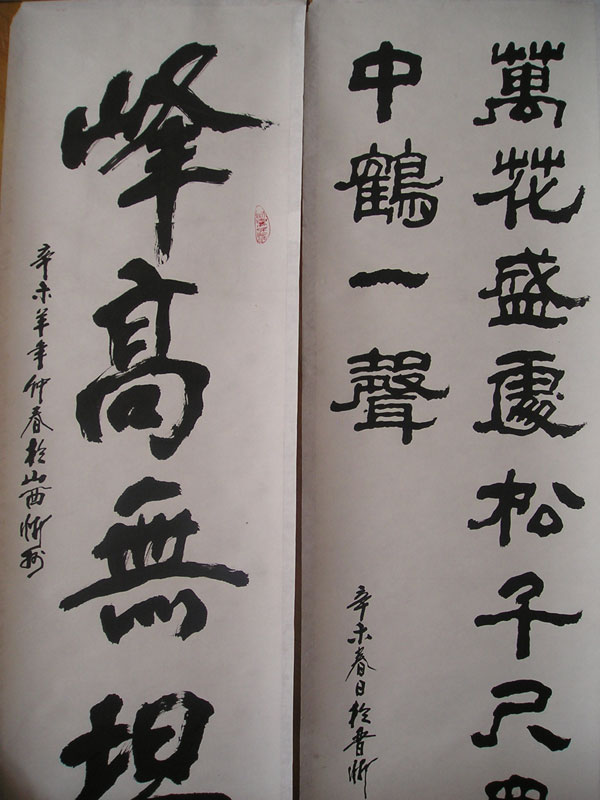 萬花盛處松千尺
中鶴一聲
辛未春日於晉忻
峰高無
辛未羊年仲春於山西忻州